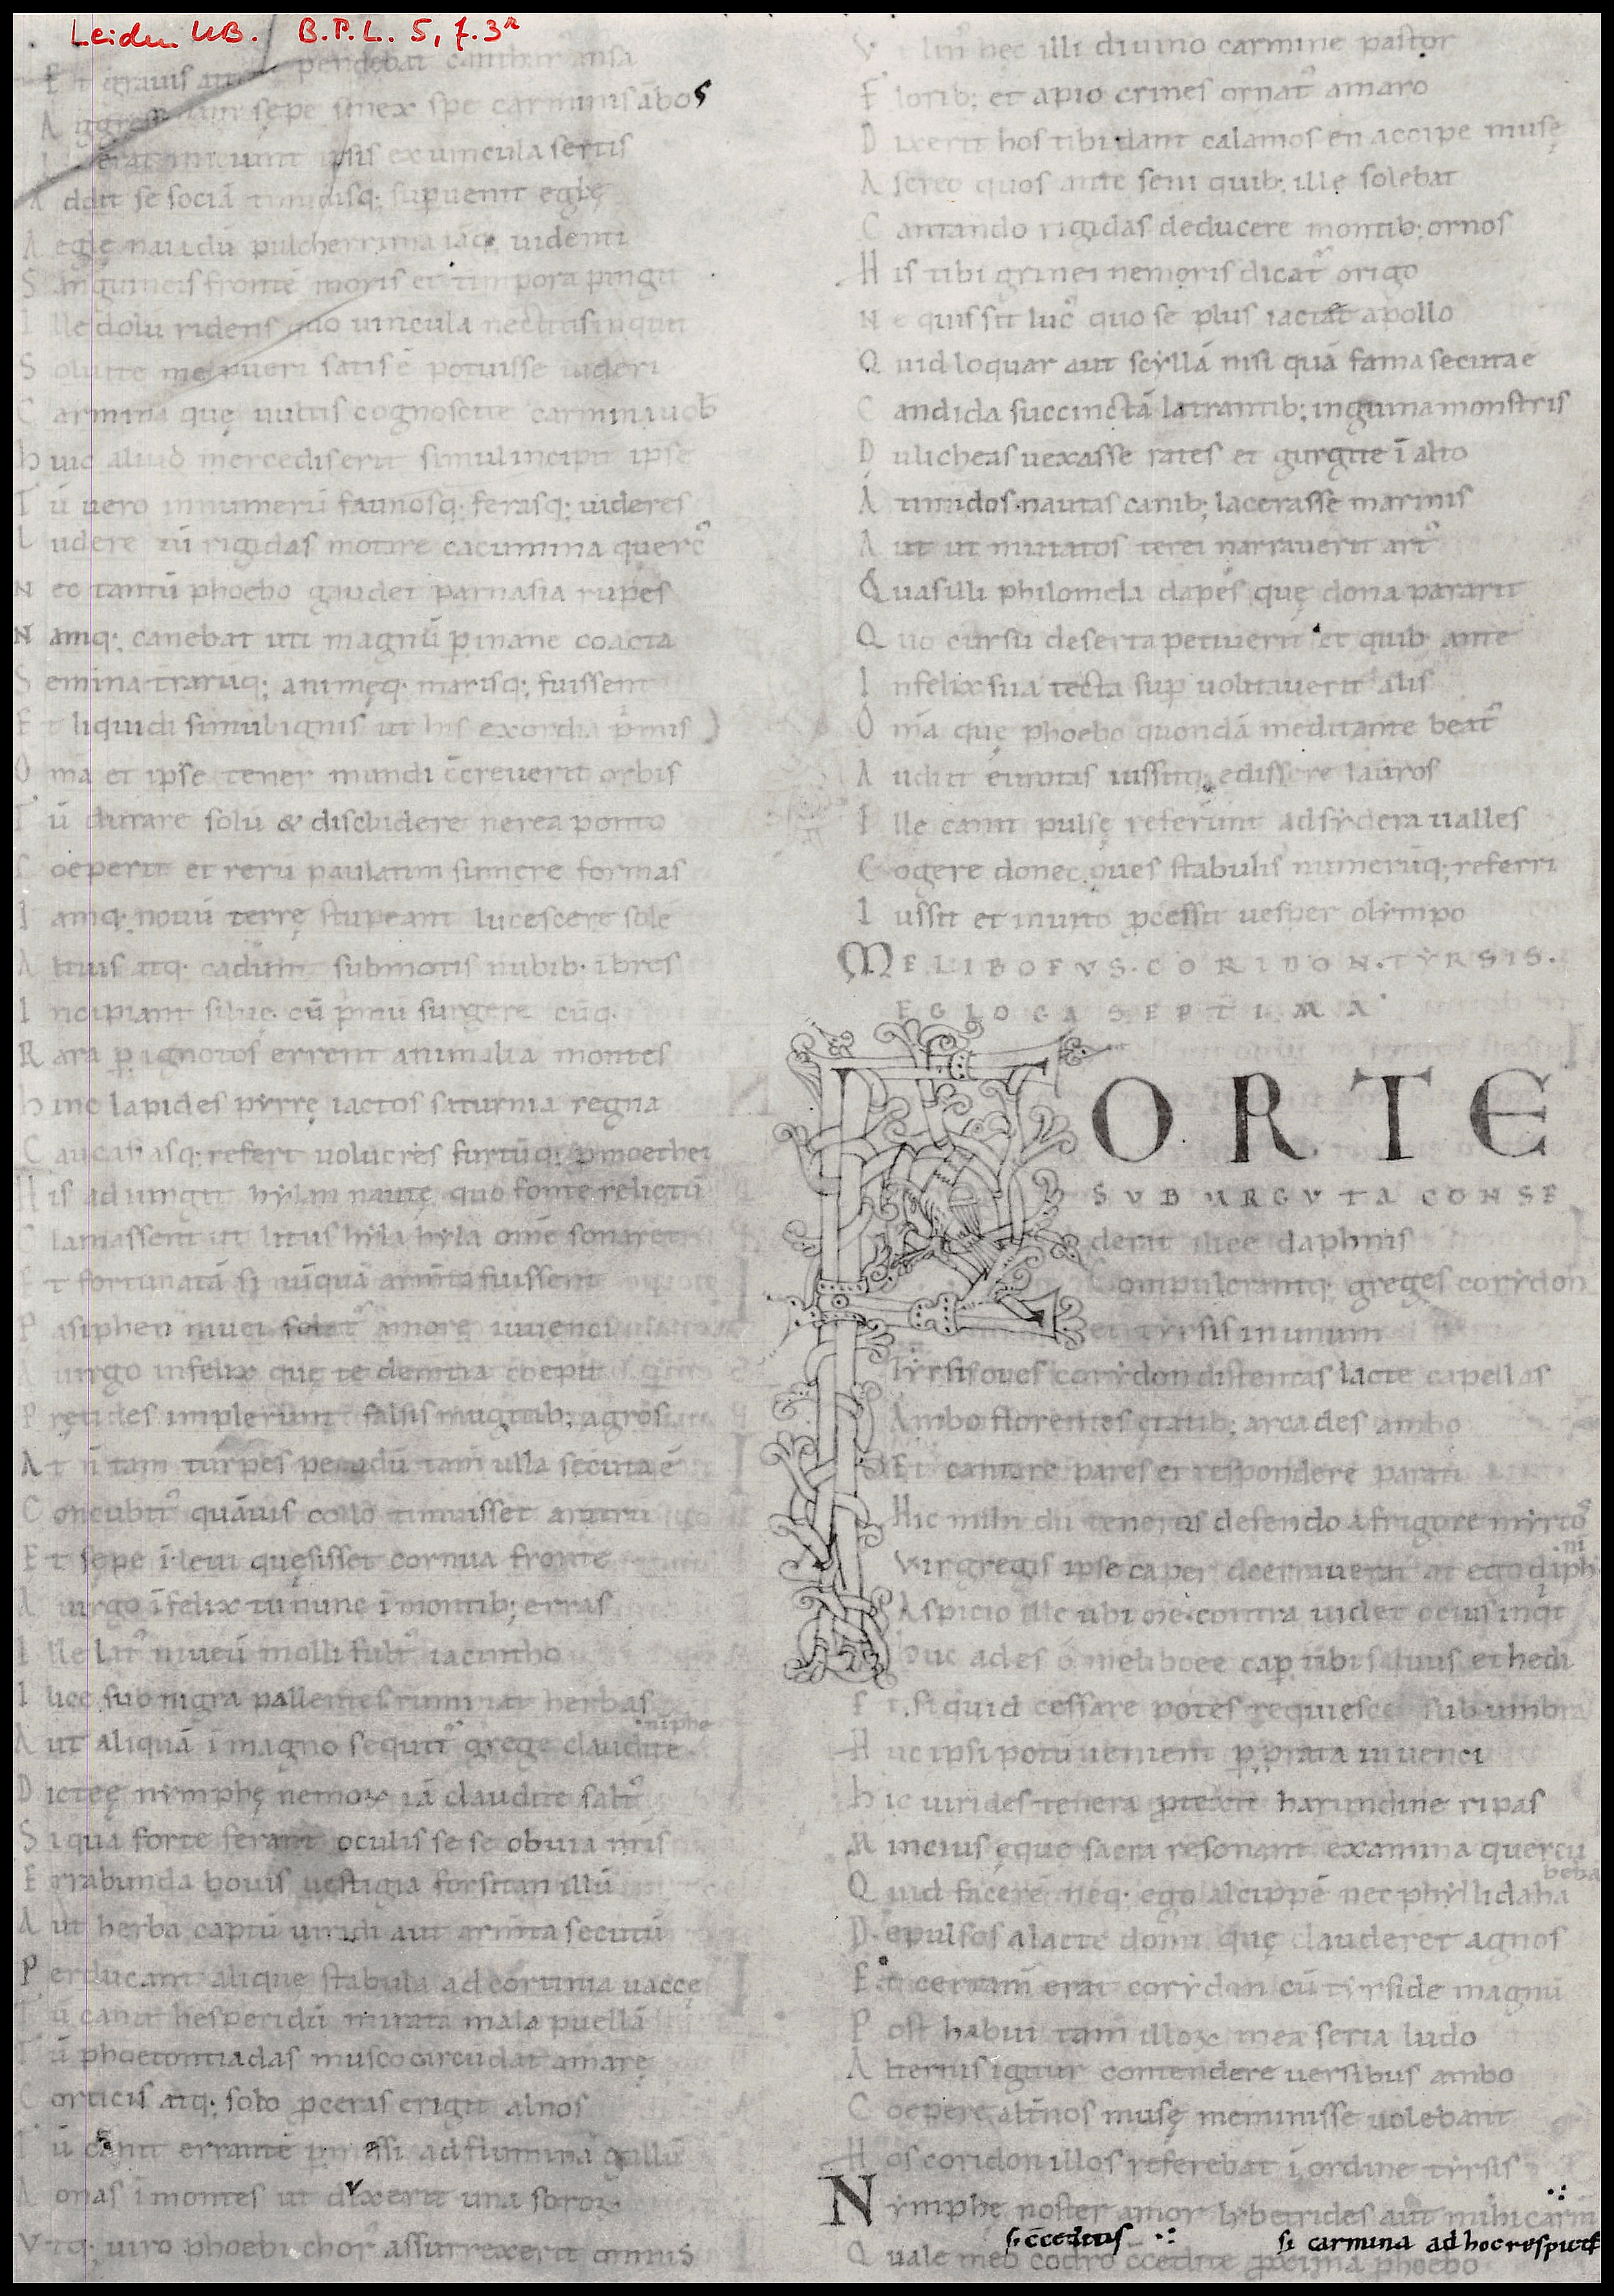 Leiden UB. B.P.L. 5, f. 3r
Et grauis attrita pendebat cantharus ansa
Aggressi nam sepe senex spe carminis ābos
ex uincula sertis
Addit se sociā timidisq; supuenit eglę
Aeglę naiadū pulcherrima iāq; uidenti
Sanguineis frontē moris et timpora pingit
Ille dolū ridens quo uincula nectitis inquit
Soluite me pueri satis ē potuisse uideri
Carmina quę uultis cognoscite carmina uob
huic aliud mercedis erit simul incipit ipse
Tū uero innumerū faunosq; ferasq; uideres
Ludere tū rigidas motare cacumina querc᾿
Nec tantū phoebo gaudet parnasia rupes
Namq; canebat uti magnū p inane coacta
Semina trarūq; animęq; marisq; fuissent
Et liquidi simul ignis ut his exordia pmis
Oma et ipse tener mundi c̄creuerit orbis
Tū durare solū & discludere nerea ponto
Coeperit et rerū paulatim sumere formas
Iamq; nouū terrę stupeant lucescere solē
Altius atq; cadunt submotis nubib; ibres
Incipiant siluę cū pmū surgere cūq;
Rara p ignotos errent animalia montes
hinc lapides pyrrę iactos saturnia regna
Caucaseasq; refert uolucres furtūq; pmoethei
His adiungit hylan nautę quo fonte relictū
Clamassent ut litus hyla hyla omē sonaret
Et fortunatā si nūquā armta fuissent
Pasiphen niuei solat᾿ amore iuuenci
A uirgo infelix quę te dementia coepit
Pretides implerunt falsis mugitib; agros
At n̄ tam turpes pecudū tam ulla secuta ē
Concubit᾿ quāuis collo timuisset aratrū
Et sepe ī leui quęsisset cornua fronte
A uirgo īfelix tu nunc ī montib; erras
Ille lat᾿ niueū molli fult᾿ iacintho
Ilice sub nigra pallentes ruminat herbas
niphe
Aut aliquā ī magno sequit᾿ grege claudite
Dicteę nymphę nemoꝝ iā claudite salt᾿
Si qua forte ferant oculis se se obuia nris
Errabunda bouis uestigia forsitan illū
Aut herba captū uiridi aut armta secutū
Perducant alique stabula ad cortinia uaccę
Tū canit hesperidū miratā mala puellā
Tū phaetontiadas musco circūdat amarę
Corticis atq; solo pceras erigit alnos
Tū canit errantē pmessi ad flumina gallū
Aonas ī montes ut duxerit una soroꝝ
Vtq; uiro phoebi chor᾿ assurrexerit omnis
Vt lin᾿ hec illi diuino carmine pastor
Florib; et apio crines ornat᾿ amaro
Dixerit hos tibi dant calamos en accipe musę
Ascreo quos ante seni quib; ille solebat
Cantando rigidas deducere montib; ornos
His tibi grinei nemoris dicat᾿ origo
Ne quis sit luc᾿ quo se plus iactat apollo
Quid loquar aut scyllā nisi quā fama secutae
Candida succinctā latrantib; inguina monstris
Dulicheas uexasse rates et gurgite ī alto
A timidos nautas canib; lacerasse marinis
Aut ut mutatos terei narrauerit art᾿
Quas illi philomela dapes quę dona pararit
Quo cursu deserta petiuerit et quib ante
Infelix sua tecta sup uolitauerit alis
Oma que phoebo quondā meditante beat᾿
Audiit eurotas iussitq; ediscere lauros
Ille canit pulsę referunt ad sydera ualles
Cogere donec oues stabulis numerūq; referri
Iussit et inuito pcessit uesper olympo
MELIBOEVS.CORIDON.TYRSIS.
EGLOGA SEPTIMA
FORTE
SVB ARGVTA CONSE
derit ilice daphnis
Compulerantq; greges corydon
et tyrsis in unum
Tyrsis oues corydon distentas lacte capellas
Ambo florentes etatib; arcades ambo
Et cantare pares et respondere parati
Hic mihi dū teneras defendo a frigore myrtos
Vir gregis ipse caper deerrauerat at ego daph
ni
Aspicio ille ubi me contra uidet ocius inqt
huc ades o meliboee cap tibi saluus et hedi
Et si quid cessare potes requiesce sub umbra
Huc ipsi potū ueniem p prata iuuenci
hic uirides tenera ptexit harundine ripas
Mincius ęque sacra resonant examina quercu
beba
Quid facerē neq; ego alcippē nec phyllida ha
Depulsos a lacte domi quę clauderet agnos
Et certam̄ erat corydon cū tyrside magnū
Post habui tam̄ illoꝝ mea seria ludo
Alternis igitur contendere uersibus ambo
Coepere altnos musę meminisse uolebant
Hos coridon illos referebat ī ordine tyrsis
Nymphe noster amor lybetrides aut mihi carm̄
si c̄ceditis si carmina ad hoc respicit
Quale meo codro c̄cedite pxima phoebo